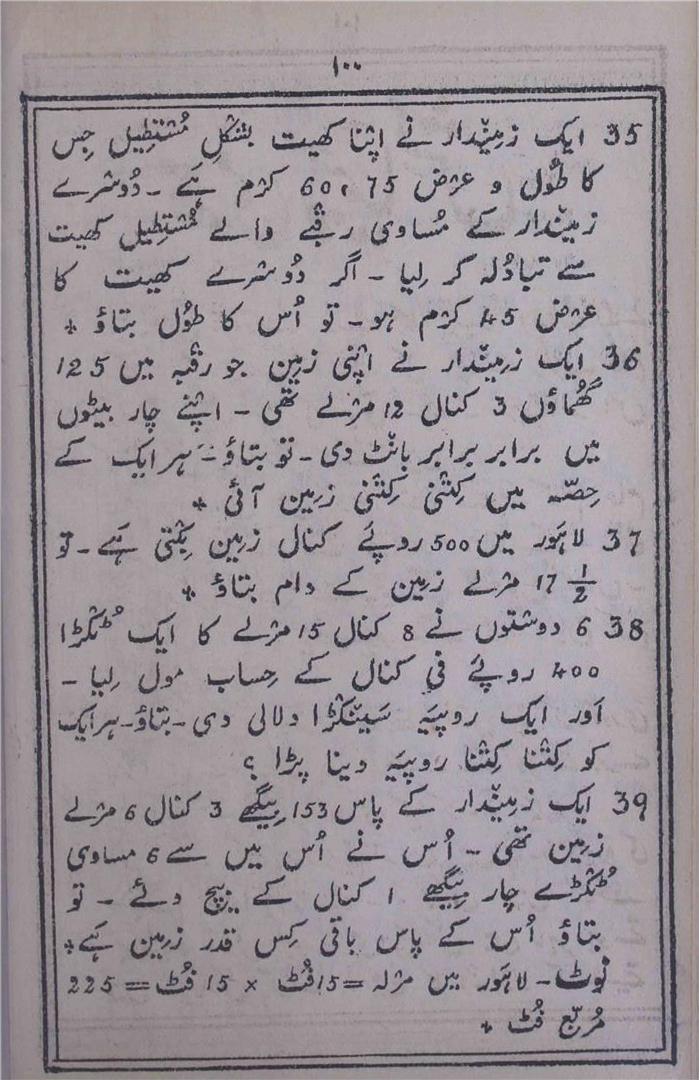 ۱۰۰
35 ایک زمیندار نے اپنا کھیت بشکل مُستطیل جس
کا طُول و عرض 75 ، 60 کرم ہے ۔ دُوسرے
زمیندار کے مُساوی رقبے والے مُستطیل کھیت
سے تبادُلہ کر لیا ۔ اگر دُوسرے کھیت کا
عرض 45 کرم ہو ۔ تو اُس کا طُول بتاؤ *
36 ایک زمیندار نے اپنی زمین جو رقبہ میں 125
گھُماؤں 3 کنال 12 مرلے تھی ۔ اپنے چار بیٹوں
میں برابر برابر بانٹ دی ۔ تو بتاؤ ۔ ہر ایک کے
حِصّہ میں کِتنی کِتنی زمین آئی *
37 لاہور میں 500 روپے کنال زمین بِکتی ہے ۔ تو
17 1/2 مرلے زمین کے دام بتاؤ *
38 6 دوستوں نے 8 کنال 15 مرلے کا ایک ٹُکڑا
400 روپے فی کنال کے حِساب مول لِیا ۔
اَور ایک روپیہ سَینکڑا دلالی دی ۔ بتاؤ ۔ ہر ایک
کو کِتنا کِتنا روپیہ دینا پڑا ؟
39 ایک زمیندار کے پاس 153 بِیگھے 3 کنال 6 مرلے
زمین تھی ۔ اُس نے اُس میں سے 6 مساوی
ٹُکڑے چار بِیگھے 1 کنال کے بیچ دئے ۔ تو
بتاؤ اُس کے پاس باقی کِس قدر زمین ہے *
نوٹ ۔ لاہور میں مرلہ = 15 فُٹ × 15 فُٹ = 225
مُربّع فُٹ *